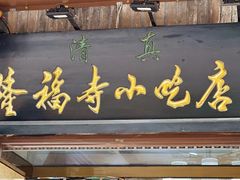 清真
隆福寺小吃店